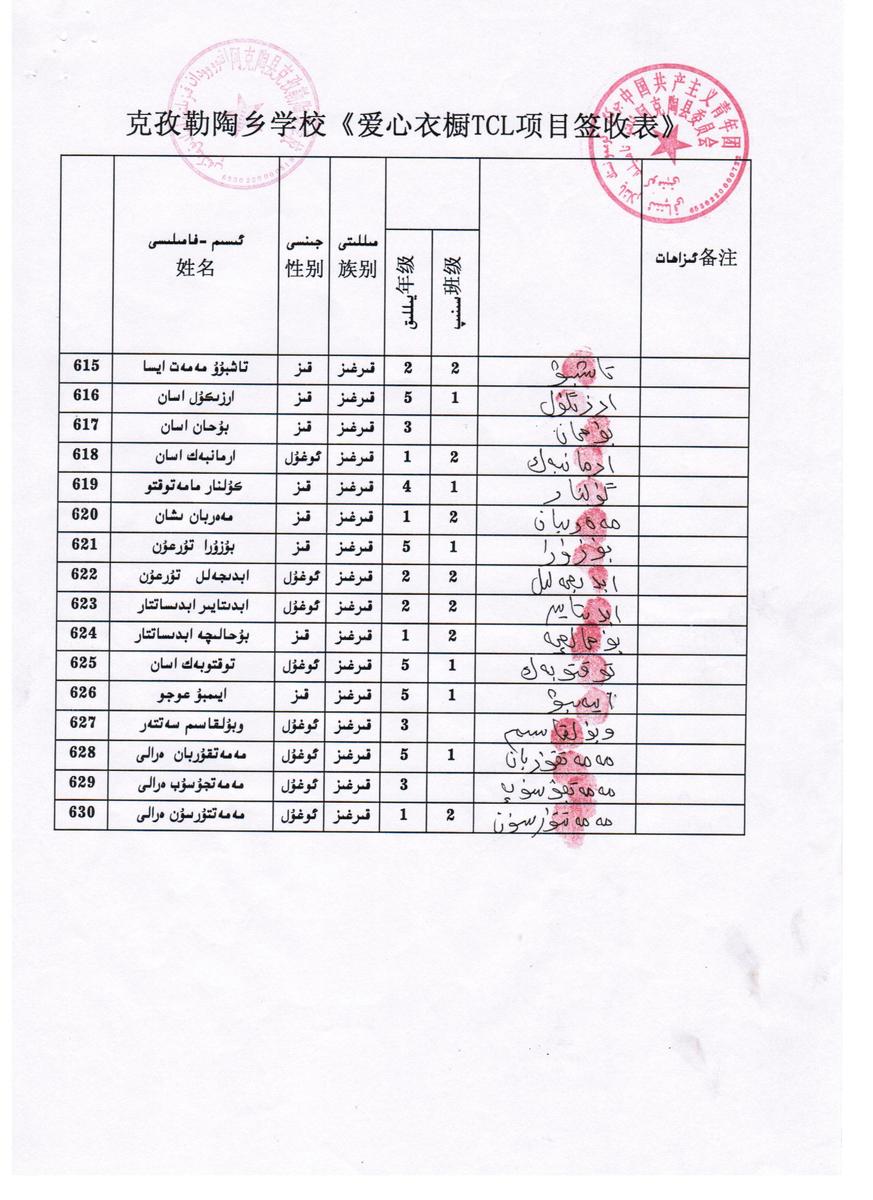 克孜勒陶乡学校《爱心衣橱TCL项目签收表》
中国共产主义青年团
克陶县委员会
6530220000732
ئىسىم -فامىلىسى جىنسى مىللىتى يىللىق سىنىپ ئىزاھات
姓名 性别 族别 年级 班级 备注
615 تاشبۇۇ مەمەت ايسا قىز قىرغىز 2 2 تاشبۇۋ
616 ارزىكۇل اسان قىز قىرغىز 5 1 ارزىگۇل
617 بۇحان اسان قىز قىرغىز 3 بۇحان
618 ارمانبەك اسان ئوغۇل قىرغىز 1 2 ارمانبەك
619 كۇلنار مامەتوقتو قىز قىرغىز 4 1 گۇلنار
620 مەەربان ىشان قىز قىرغىز 1 2
621 بۇزۇرا تۇرعۇن قىز قىرغىز 5 1 بۇزۇرا
622 ابدىجەلل تۇرعۇن ئوغۇل قىرغىز 2 2
623 ابدىتايىر ابدىساتتار ئوغۇل قىرغىز 2 2
624 بۇحالىچە ابدىساتتار قىز قىرغىز 1 2 بۇحالچە
625 توقتوبەك اسان ئوغۇل قىرغىز 5 1 توقتوبەك
626 ايىمبۇ عوجو قىز قىرغىز 5 1
627 وبۇلقاسىم سەتتەر ئوغۇل قىرغىز 3 وبۇلقاسىم
628 مەمەتقۇربان ەرالى ئوغۇل قىرغىز 5 1 مەمەتقۇربان
629 مەمەتجۇسۇب ەرالى ئوغۇل قىرغىز 3
630 مەمەتتۇرسۇن ەرالى ئوغۇل قىرغىز 1 2 مەمەتتۇرسۇن